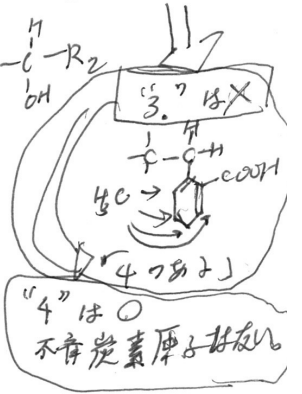 H
-C-R2
OH
"3." は×
H
-C-C-H
COOH
「4つある」
"4" は○
不斉炭素原子はない。